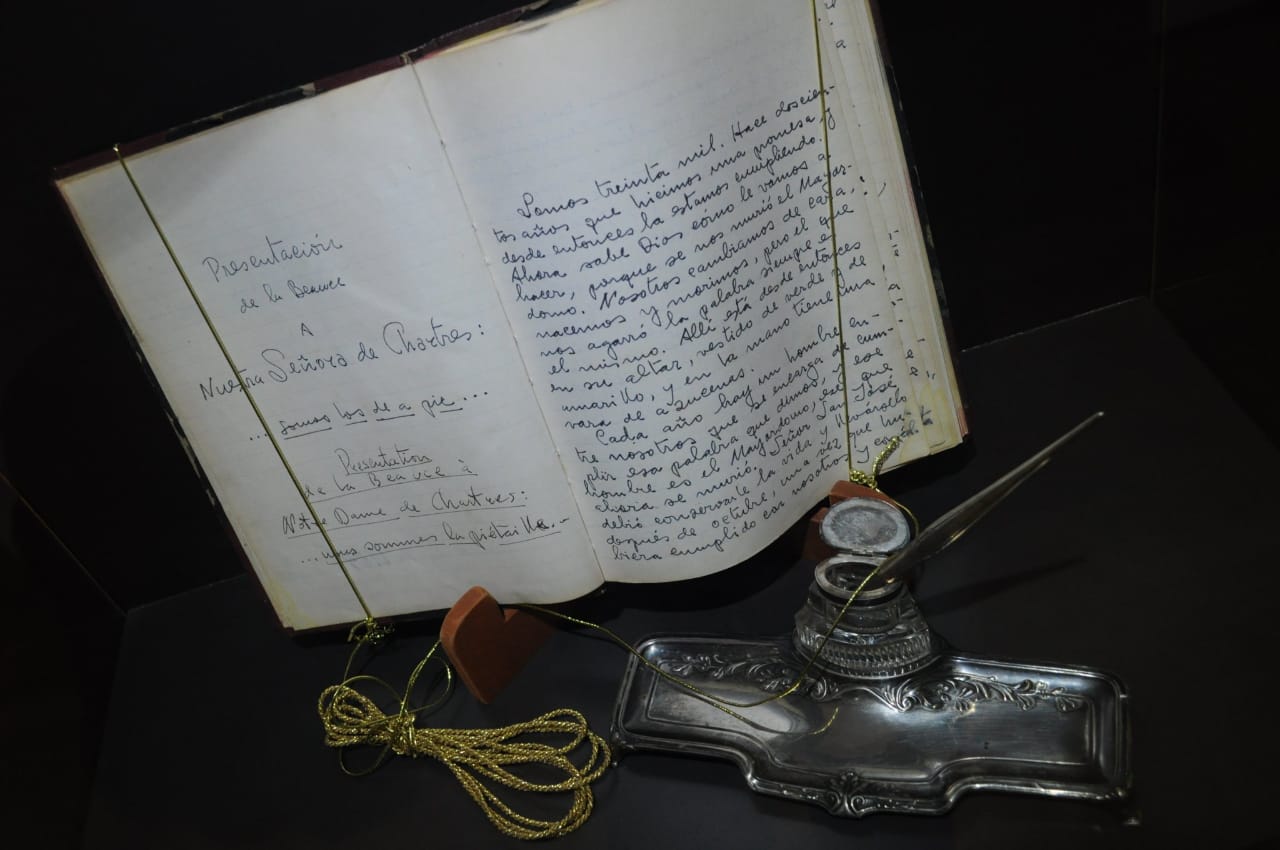 Presentación
de la Beauce
A
Nuestra Señora de Chartres:
...somos los de a pie...
Presentation
de la Beauce à
Notre Dame de Chartres:
...nous sommes la piétaille.-
Somos treinta mil. Hace doscien-
tos años que hicimos una promesa y
desde entonces la estamos cumpliendo.
Ahora sabe Dios cómo le vamos a
hacer, porque se nos murió el Mayor-
domo. Nosotros cambiamos de cara,
nacemos y morimos, pero el que
nos agarró la palabra siempre es
el mismo. Allí está desde entonces
en su altar, vestido de verde y de
amarillo, y en la mano tiene una
vara de azucenas.
Cada año hay un hombre en-
tre nosotros que se encarga de cum-
plir esa palabra que dimos, y ese
hombre es el Mayordomo, ese que
ahora se murió. Señor San José
debió conservarle la vida y llevárselo
después de Octubre, una vez que hu-
biera cumplido con nosotros y con